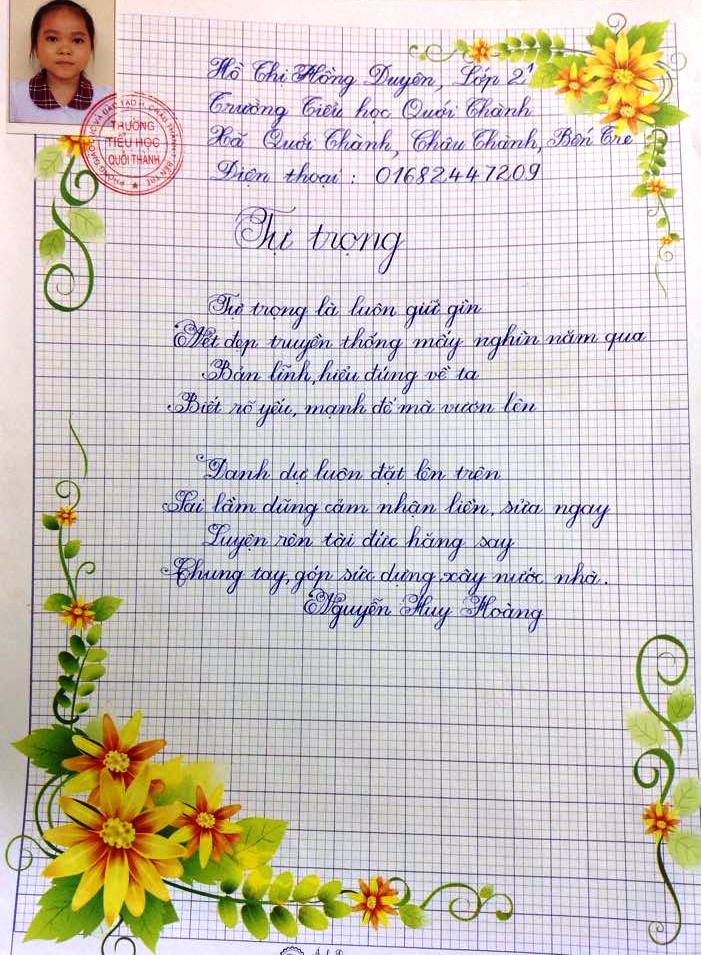 Hồ Thị Hồng Duyên, Lớp 2¹
Trường Tiểu học Quới Thành
Xã Quới Thành, Châu Thành, Bến Tre
Điện thoại : 01682447209
PHÒNG GIÁO DỤC VÀ ĐÀO TẠO H. CHÂU THÀNH
TRƯỜNG
TIỂU HỌC
QUỚI THÀNH
BẾN TRE
Tự trọng
Tự trọng là luôn giữ gìn
Nét đẹp truyền thống mấy nghìn năm qua
Bản lĩnh, hiểu đúng về ta
Biết rõ yếu, mạnh để mà vươn lên
Danh dự luôn đặt lên trên
Sai lầm dũng cảm nhận liền, sửa ngay
Luyện rèn tài đức hăng say
Chung tay, góp sức dựng xây nước nhà.
Nguyễn Huy Hoàng